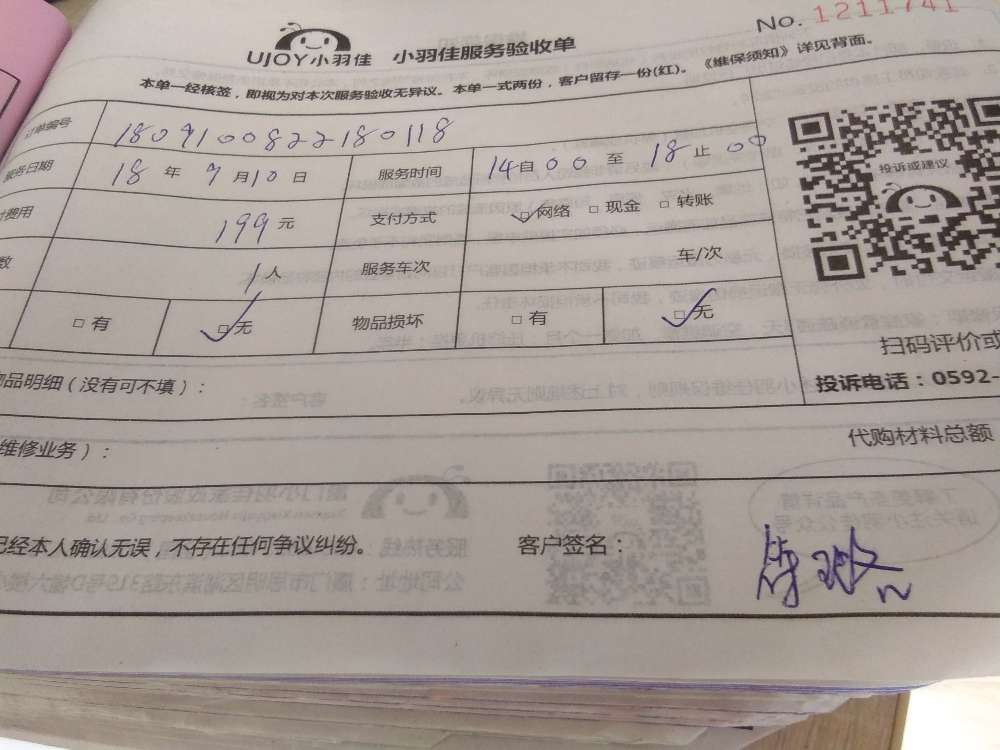 No. 1211741
UJOY小羽佳 小羽佳服务验收单
本单一经核签，即视为对本次服务验收无异议。本单一式两份，客户留存一份(红)。《维保须知》详见背面。
订单编号 1809100822180118
服务日期 18年9月10日 服务时间 14自00至18止00
费用 199元 支付方式 ☑网络 □现金 □转账
数 1人 服务车次 车/次
□有 ☑无 物品损坏 □有 ☑无
投诉或建议
扫码评价或
物品明细（没有可不填）： 投诉电话：0592-
维修业务）： 代购材料总额
已经本人确认无误，不存在任何争议纠纷。 客户签名：